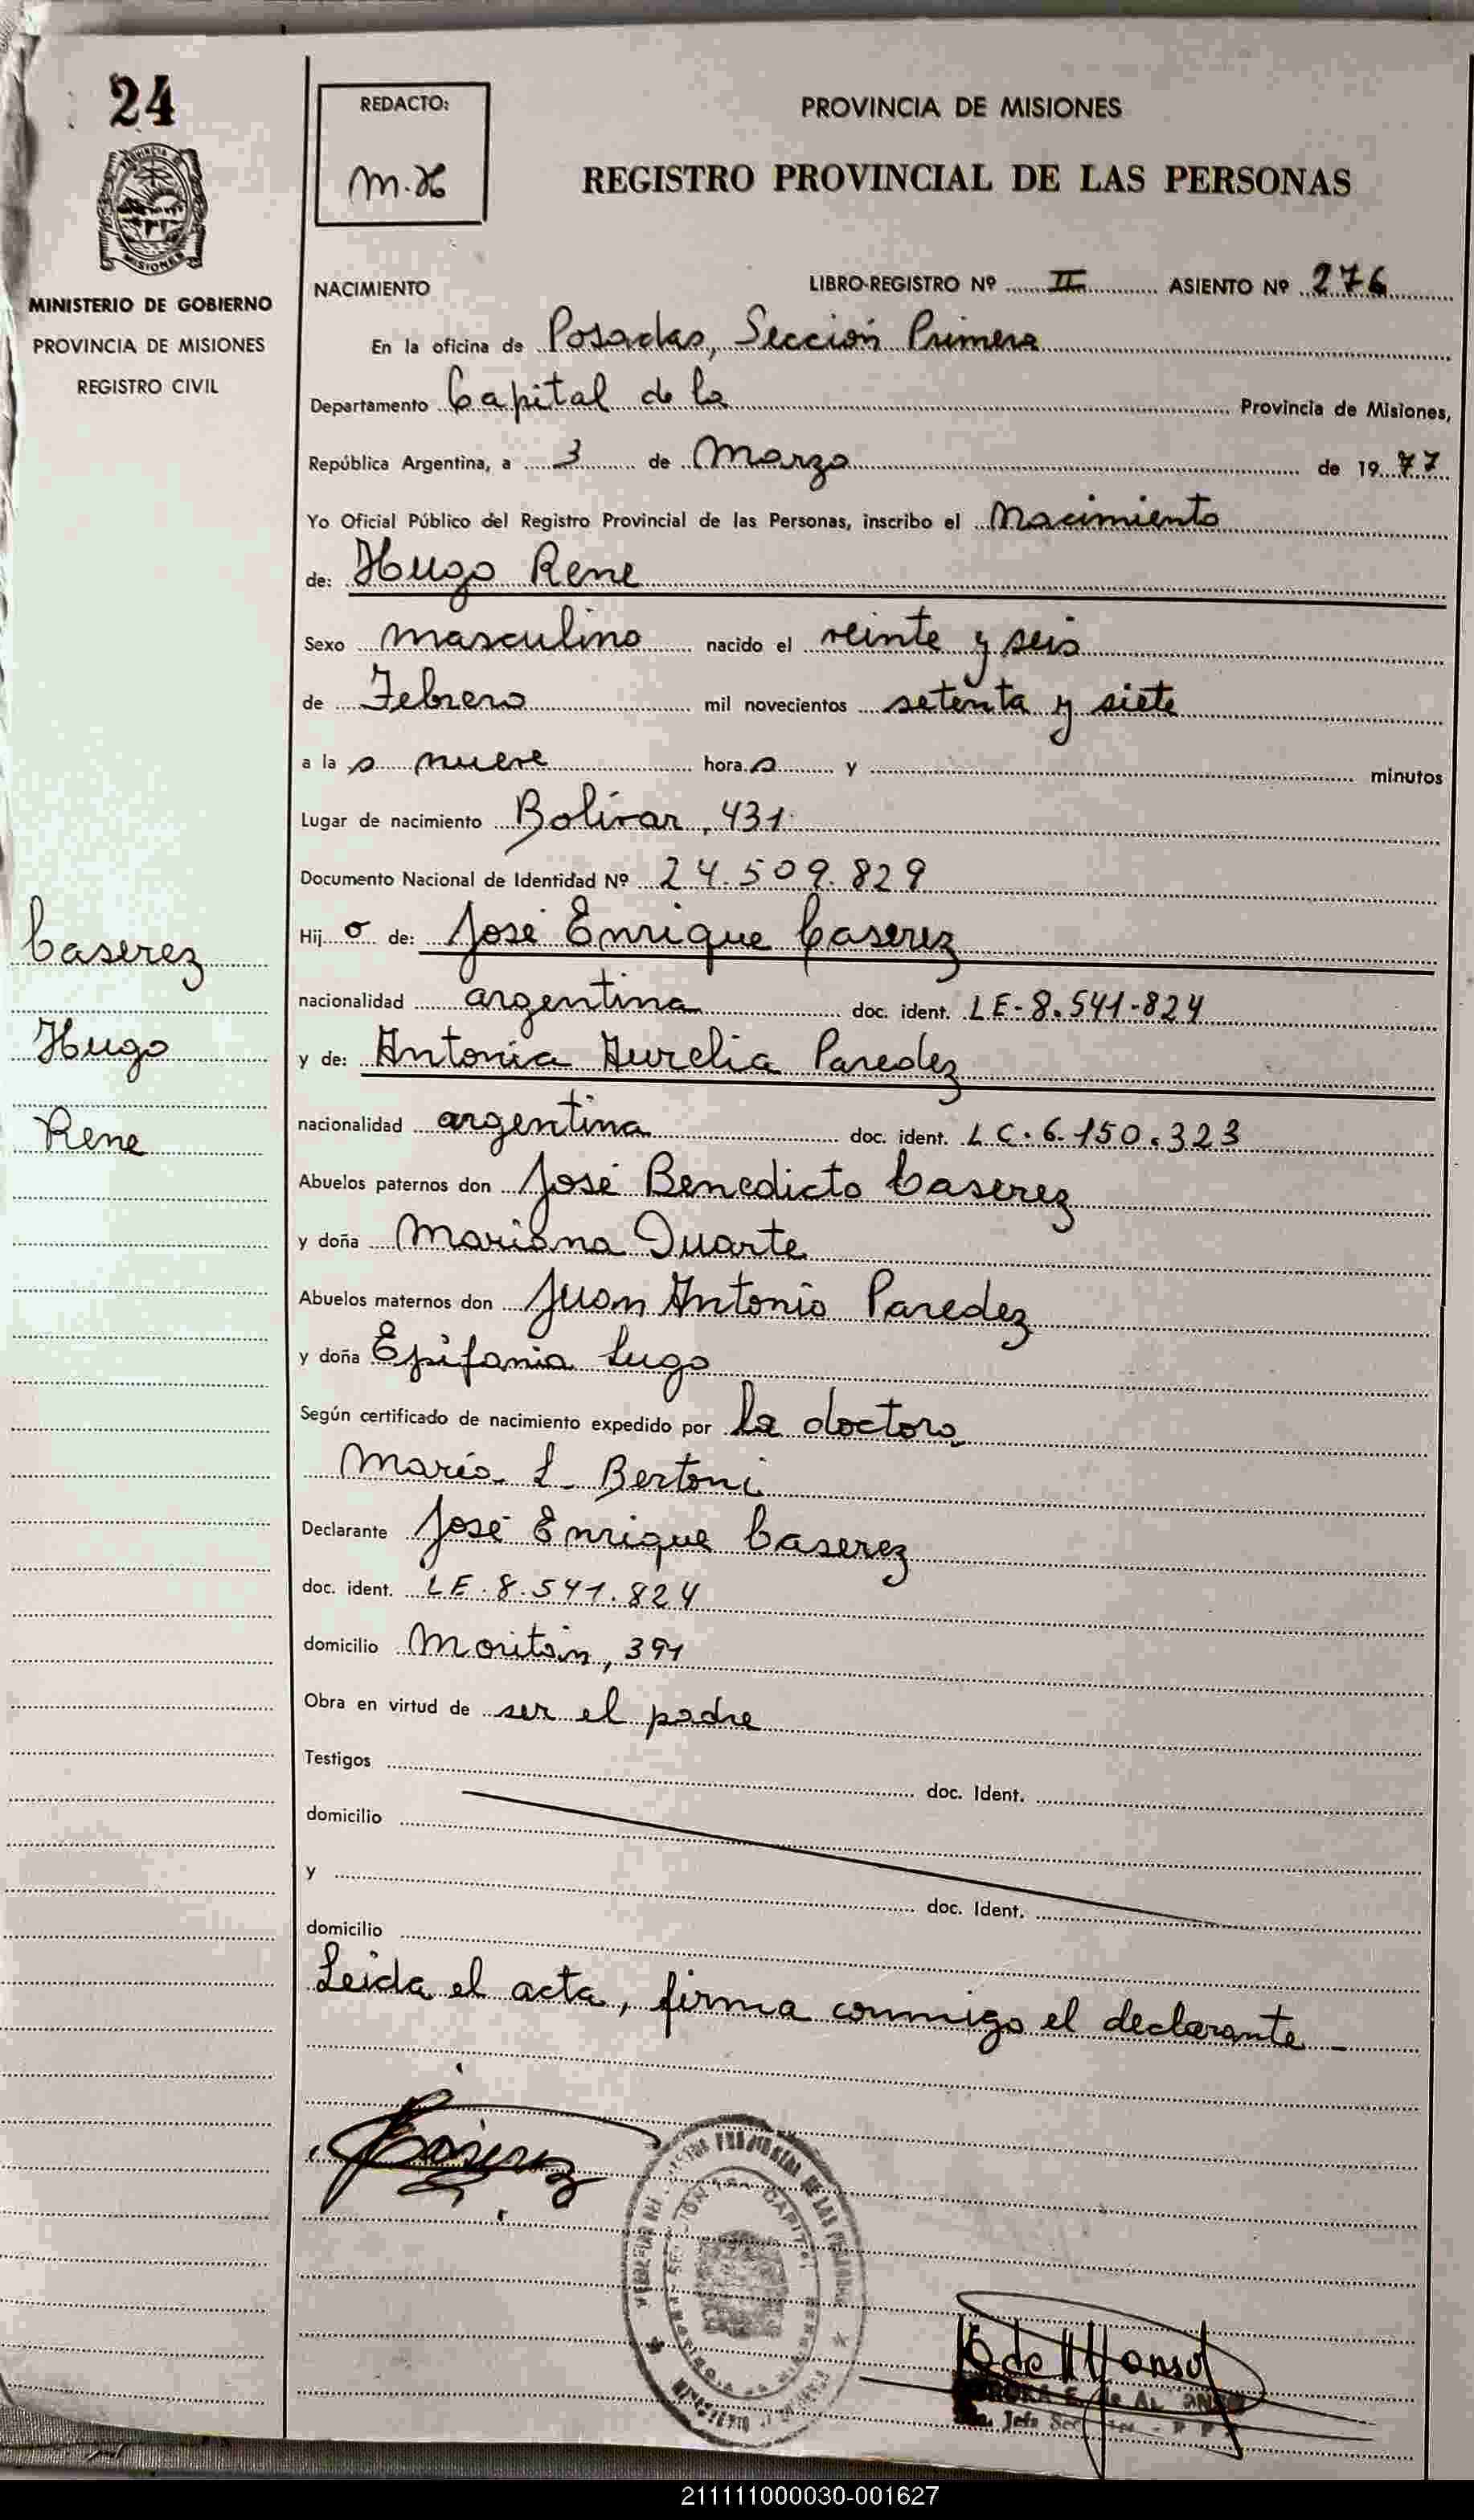 24
REDACTO:
PROVINCIA DE MISIONES
REGISTRO PROVINCIAL DE LAS PERSONAS
MISIONES
MINISTERIO DE GOBIERNO
PROVINCIA DE MISIONES
REGISTRO CIVIL
NACIMIENTO LIBRO-REGISTRO Nº II ASIENTO Nº 276
En la oficina de Posadas, Sección Primera
Departamento Capital de la Provincia de Misiones,
República Argentina, a 3 de Marzo de 1977
Yo Oficial Público del Registro Provincial de las Personas, inscribo el Nacimiento
de: Hugo Rene
Sexo masculino nacido el veinte y seis
de Febrero mil novecientos setenta y siete
a la s nueve hora s y minutos
Lugar de nacimiento Bolívar, 431
Documento Nacional de Identidad Nº 24.509.829
Hij o de: José Enrique Caserez
nacionalidad argentina doc. ident. LE-8.541-824
y de: Antonia Aurelia Paredez
nacionalidad argentina doc. ident. LC.6.150.323
Abuelos paternos don José Benedicto Caserez
y doña Mariana Duarte
Abuelos maternos don Juan Antonio Paredez
y doña Epifania Lugo
Según certificado de nacimiento expedido por la doctora
María L. Bertoni
Declarante José Enrique Caserez
doc. ident. LE.8.541.824
domicilio 391
Obra en virtud de ser el padre
Testigos doc. Ident.
domicilio
y doc. Ident.
domicilio
Leida el acta, firma conmigo el declarante -
Caserez
Hugo
Rene
Caserez
211111000030-001627